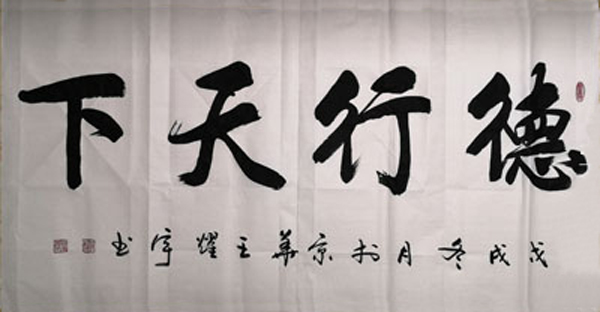 德行天下
戊戌冬月於京華王耀宇书